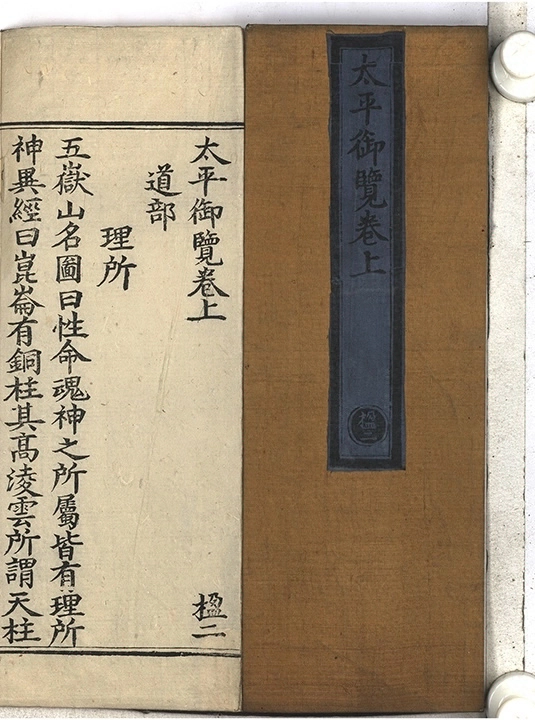 太平御覽卷上
楹二
太平御覽卷上 楹二
道部
理所
五嶽山名圖曰性命魂神之所屬皆有理所
神異經曰崑崙有銅柱其髙淩雲所謂天柱